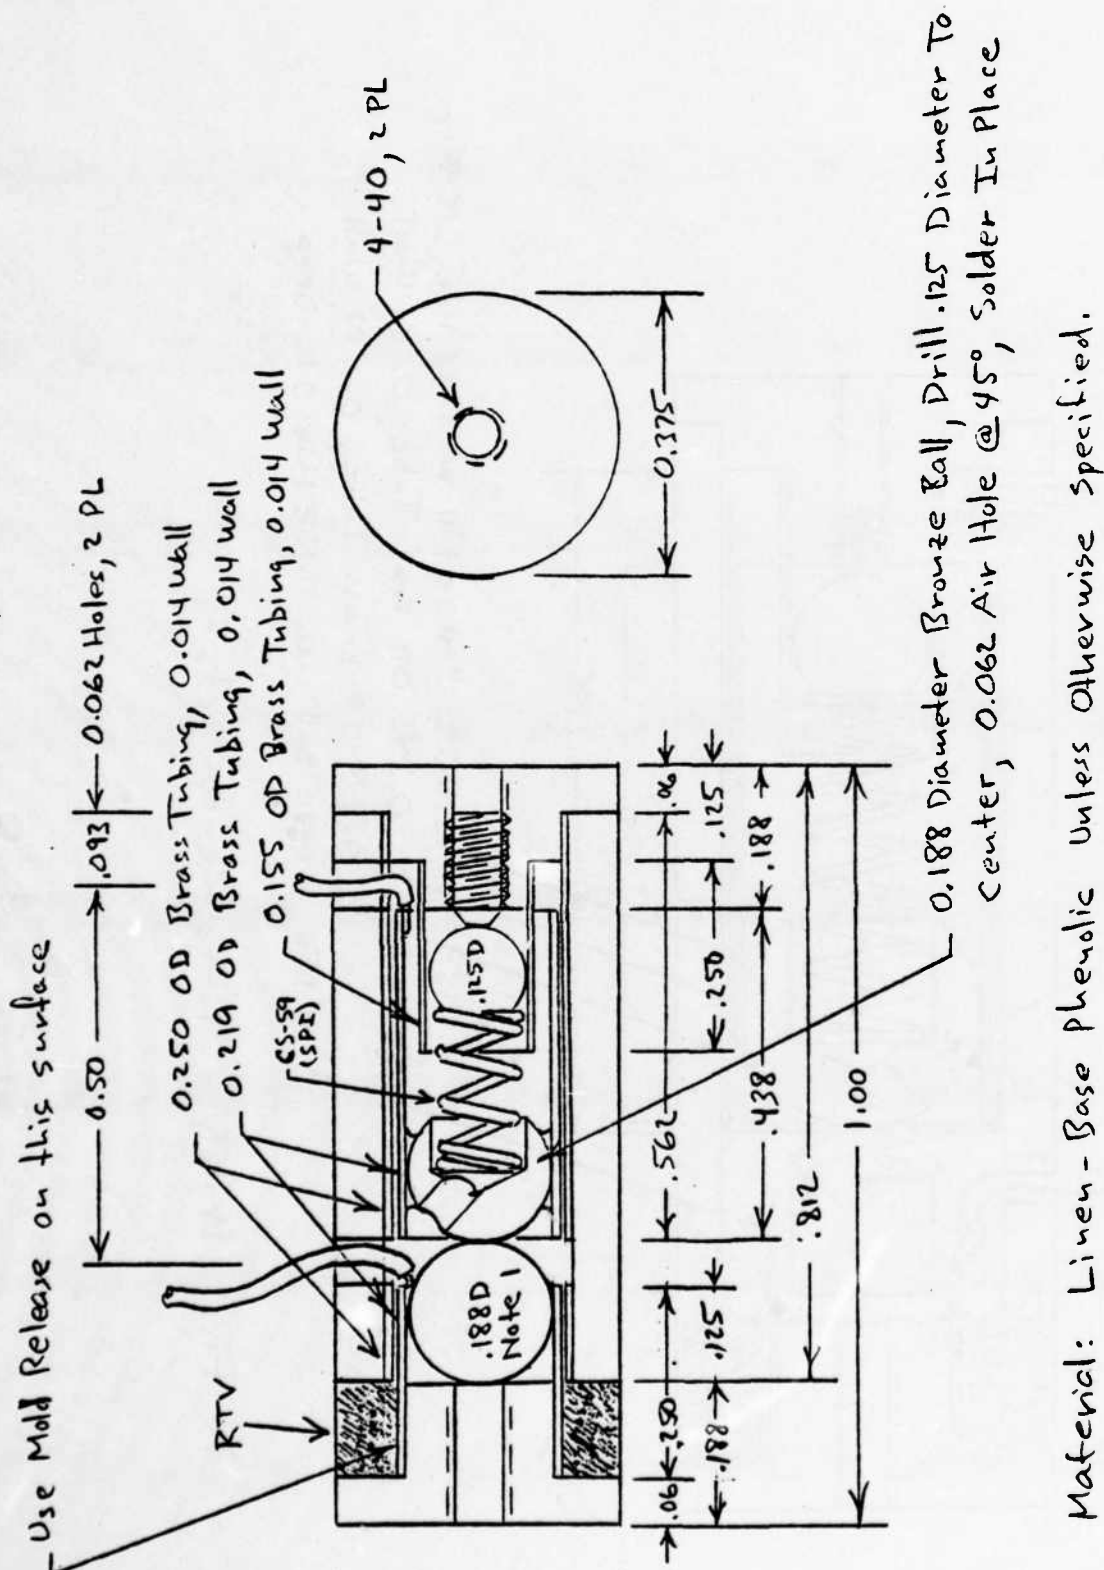 Use Mold Release on this surface
0.50
.093
0.062 Holes, 2 PL
0.250 OD Brass Tubing, 0.014 wall
0.219 OD Brass Tubing, 0.014 wall
0.155 OD Brass Tubing, 0.014 wall
CS-59
(SPI)
RTV
.188D
Note 1
.125D
4-40, 2 PL
0.375
.06
.250
.562
.06
.188
.125
.250
.125
.438
.188
.812
1.00
0.188 Diameter Bronze Ball, Drill .125 Diameter To
Center, 0.062 Air Hole @ 45°, Solder In Place
Material: Linen-Base phenolic Unless Otherwise Specified.